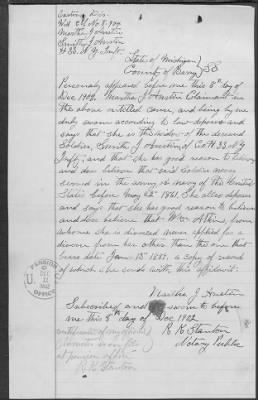 Eastern Div.
Wid
Martha J Austin
Smith J Austin
H 33. N Y Infty
State of Michigan
County of Barry } SS
Personaly appeared before me this 8th day of
Dec 1902, Martha J Austin Claimant in
the above entitled cause, and being by me
duly sworn according to law deposes and
says that she is the widow of the deceased
Soldier, Smith J Austin of Co H 33 N Y
Infty; and that she has good reason to believe
and does believe that said Soldier never
served in the army or navy of the United
States before May 22d 1861. She also deposes
and says that she has good reason to believe
and does believe that Wm Atkins, from
whome she is divorced never applied for a
divorce from her other than the one that
bears date Jan 15th 1855, a copy of record
of which she sends with this affidavit.
Martha J Austin
Subscribed and sworn to before
me this 8th day of Dec 1902
R K Stanton
Notary Public
certificate of my office
at pension office
R K Stanton
PENSION
OFFICE